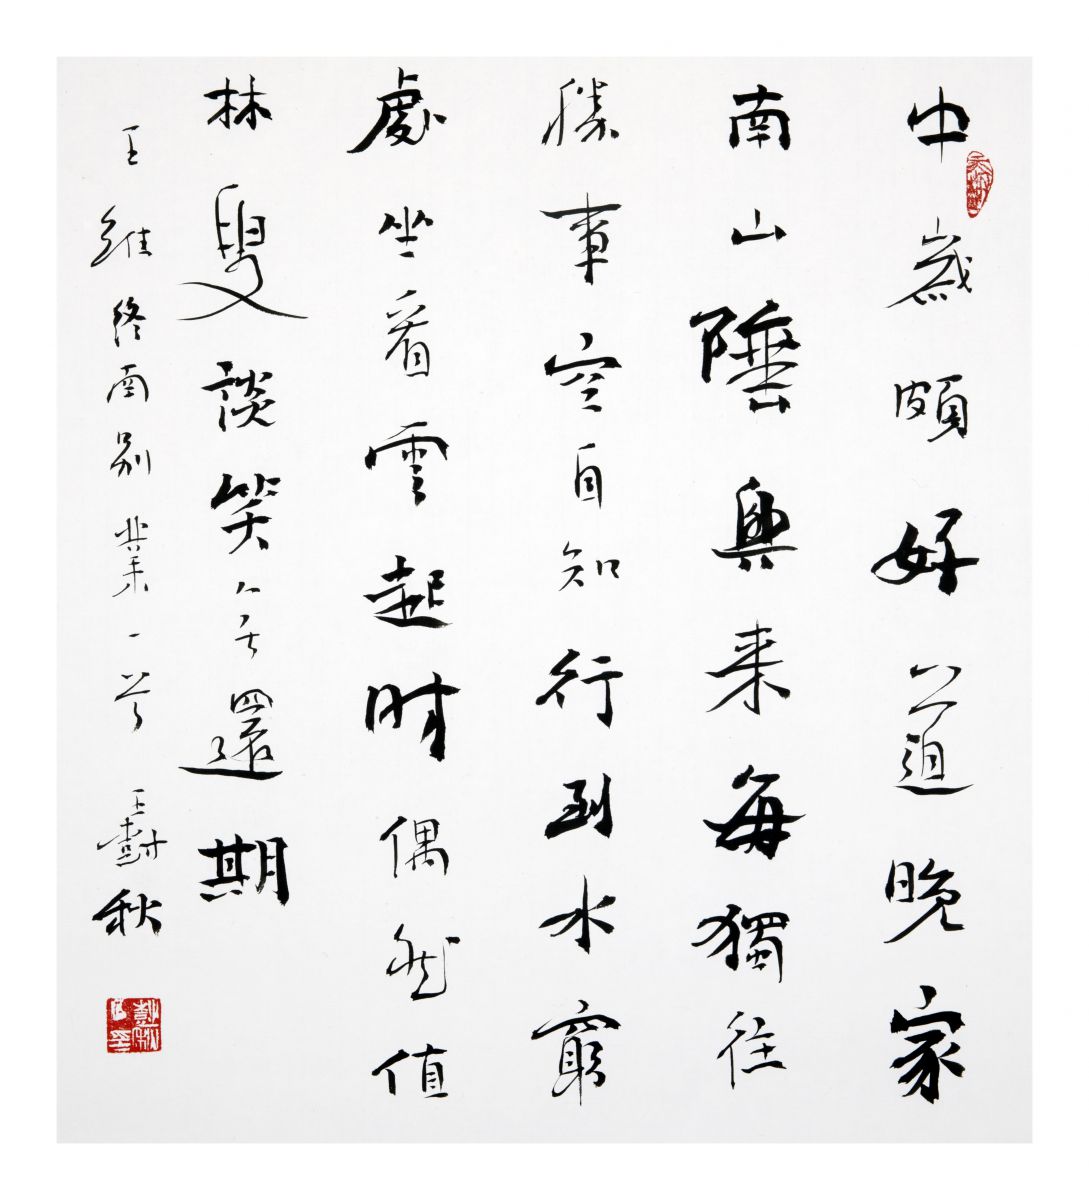 中歲頗好道晚家
南山陲興来每獨往
勝事空自知行到水窮
處坐看雲起時偶然值
林叟談笑無還期
王維終南别業一首 王尌秋